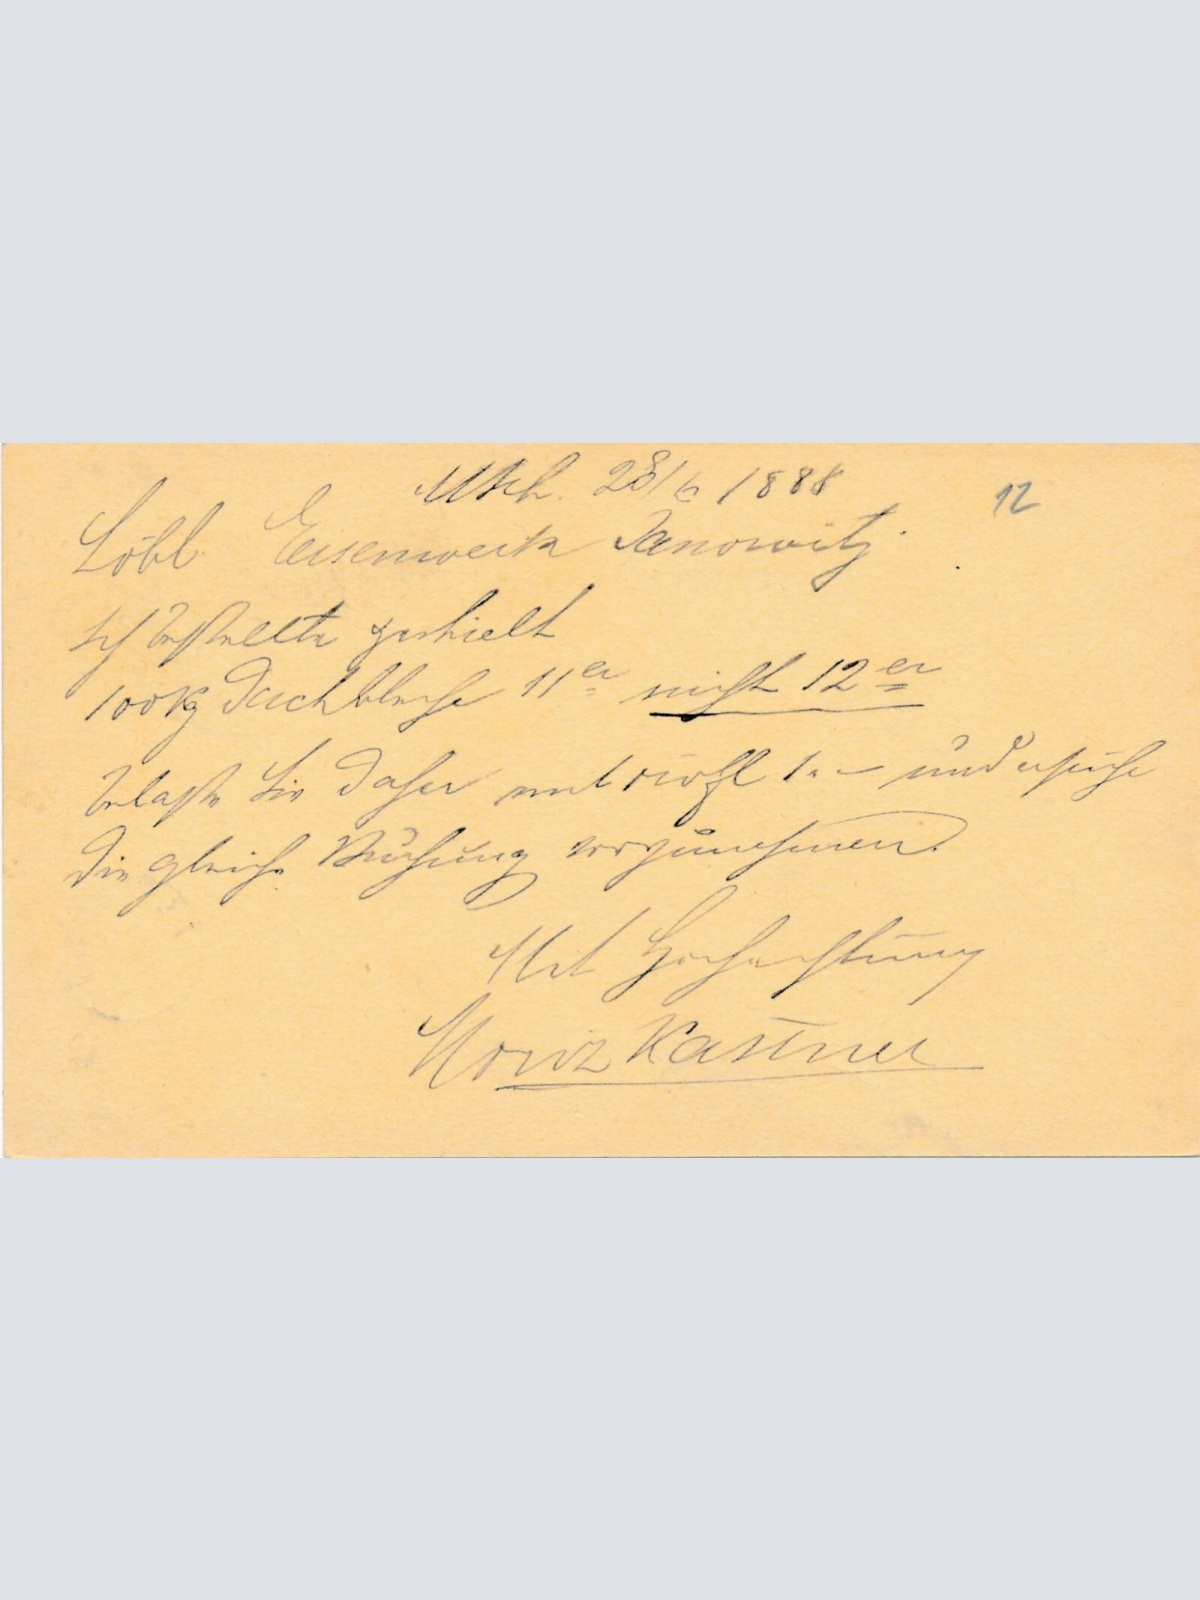 Msch. 28/6 1888
12
Löbl. Eisenwerk Janowitz.
Ich bestellte erhielt
100 Kg Dachbleche 11er nicht 12er
belaste Sie daher mit fl 1.– und ersuche
die gleiche Buchung vorzunehmen.
Mit Hochachtung
Moriz Kastner